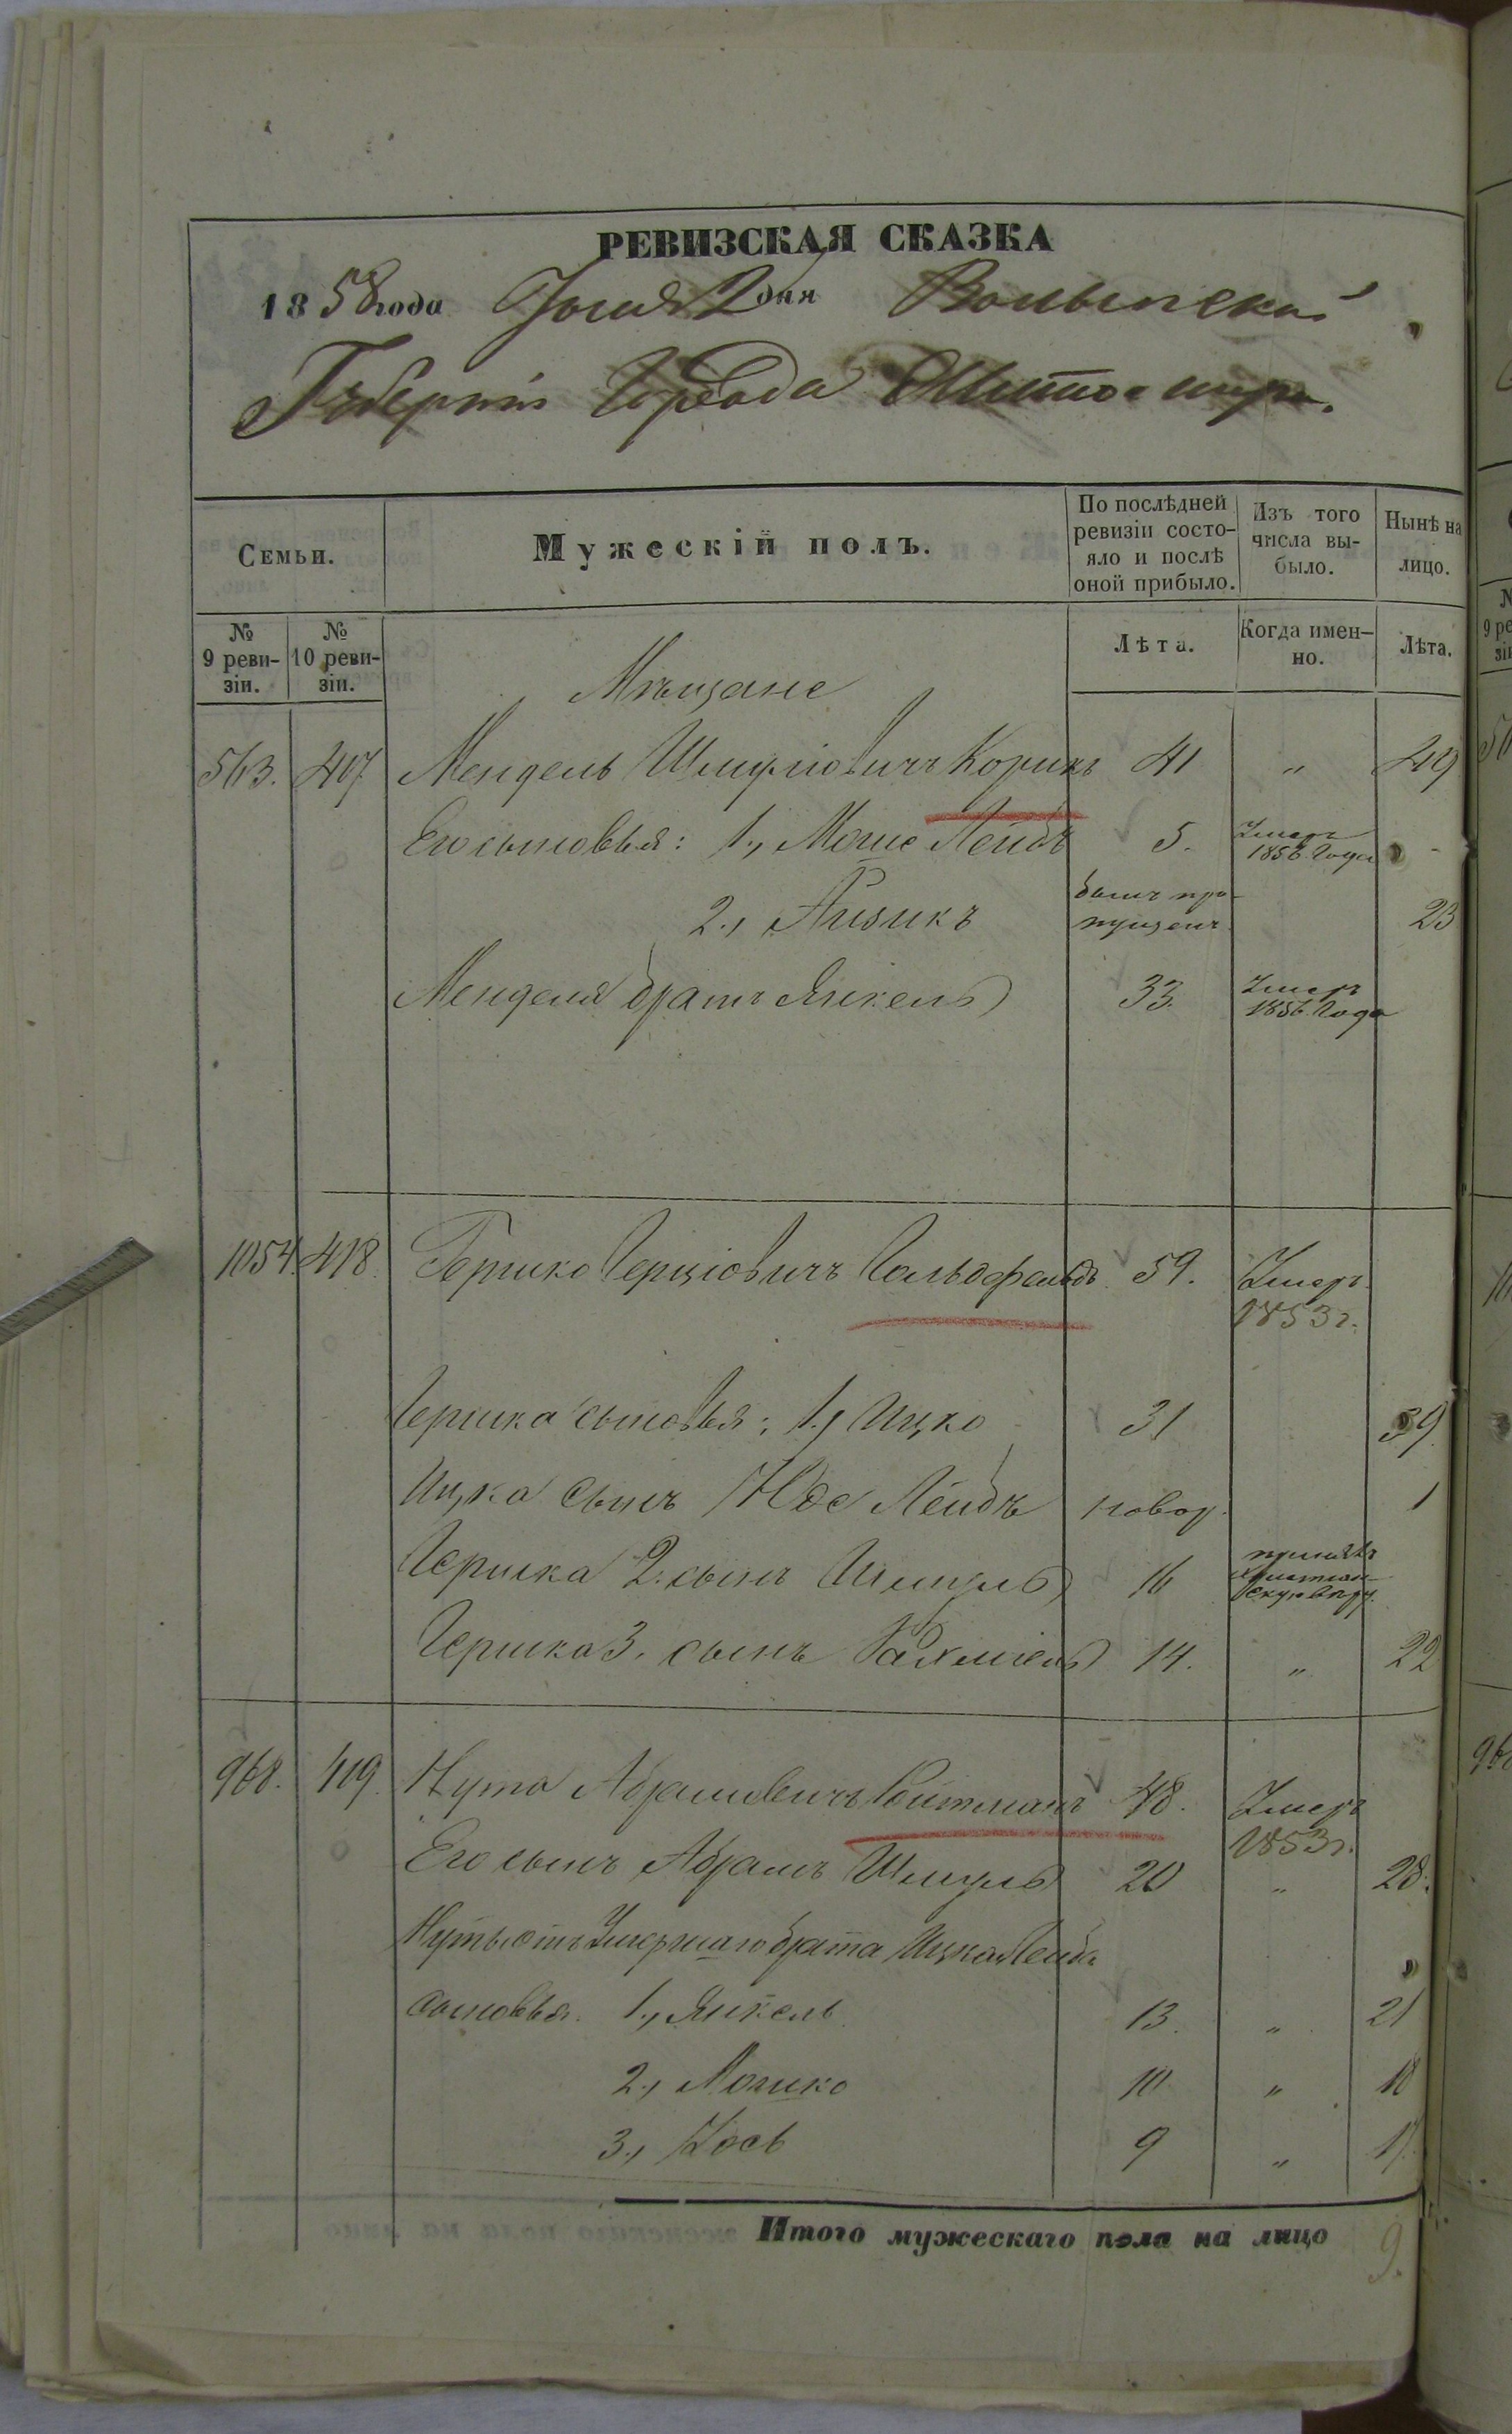 РЕВИЗСКАЯ СКАЗКА
1858 года Іюня 2 дня Волынской
Губерніи Города Житомира.
Семьи.
Мужескій полъ.
По послѣдней ревизіи состо-
яло и послѣ
оной прибыло.
Изъ того
числа вы-
было.
Нынѣ на
лицо.
№ 9 реви-
зіи.
№ 10 реви-
зіи.
Лѣта.
Когда имен-
но.
Лѣта.
Мѣщане
563. 407 Мендель Шмулiовичъ Корикъ 41 " 49
Его сыновья: 1., Мошe Лейбъ 5. Умеръ 1856 Года -
2., Айзикъ былъ про-
пущенъ 23
Менделя братъ Янкель 33. Умеръ 1856 Года
1054. 418. Гершко Герціовичъ Гольдфельдъ 59. Умеръ
1853 г.
Гершка сыновья: 1., Ицко 31 39.
Ицка сынъ Юдe Лейбъ новор. 1
Гершка 2. сынъ Шмуль 16 принялъ
христіан-
скую вѣру.
Гершка 3. сынъ Рахміель 14. " 22
968. 419. Нута Абрамовичъ Ройтманъ 48. Умеръ
1853 г.
Его сынъ Абрамъ Шмуль 20 " 28.
Нуты отъ Умершаго брата Ицка Лейба
сыновья. 1., Янкель 13. " 21
2., Мошко 10 " 18
3., Іось 9 " 17.
Итого мужескаго пола на лицо 9.